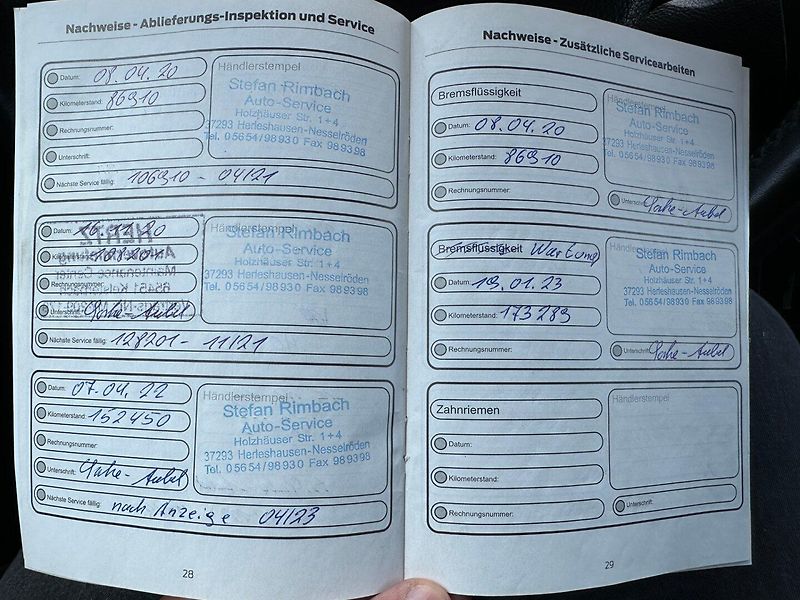 Nachweise - Ablieferungs-Inspektion und Service
Datum: 08.04.20
Kilometerstand: 86910
Rechnungsnummer:
Unterschrift:
Nächste Service fällig: 106910 - 04/21
Händlerstempel
Stefan Rimbach
Auto-Service
Holzhäuser Str. 1+4
37293 Herleshausen-Nesselröden
Tel. 05654/98930 Fax 989398
Datum: 16.11.20
Rechnungsnummer:
Unterschrift:
Nächste Service fällig: 128201 - 11/21
Händlerstempel
Stefan Rimbach
Auto-Service
Holzhäuser Str. 1+4
37293 Herleshausen-Nesselröden
Tel. 05654/98930 Fax 989398
Datum: 07.04.22
Kilometerstand: 152450
Rechnungsnummer:
Unterschrift:
Nächste Service fällig: nach Anzeige 04/23
Händlerstempel
Stefan Rimbach
Auto-Service
Holzhäuser Str. 1+4
37293 Herleshausen-Nesselröden
Tel. 05654/98930 Fax 989398
28
Nachweise - Zusätzliche Servicearbeiten
Bremsflüssigkeit
Datum: 08.04.20
Kilometerstand: 86910
Rechnungsnummer:
Händlerstempel
Stefan Rimbach
Auto-Service
Holzhäuser Str. 1+4
37293 Herleshausen-Nesselröden
Tel. 05654/98930 Fax 989398
Unterschrift:
Bremsflüssigkeit Wartung
Datum: 19.01.23
Kilometerstand: 173289
Rechnungsnummer:
Händlerstempel
Stefan Rimbach
Auto-Service
Holzhäuser Str. 1+4
37293 Herleshausen-Nesselröden
Tel. 05654/98930 Fax 989398
Unterschrift:
Zahnriemen
Datum:
Kilometerstand:
Rechnungsnummer:
Händlerstempel
Unterschrift:
29